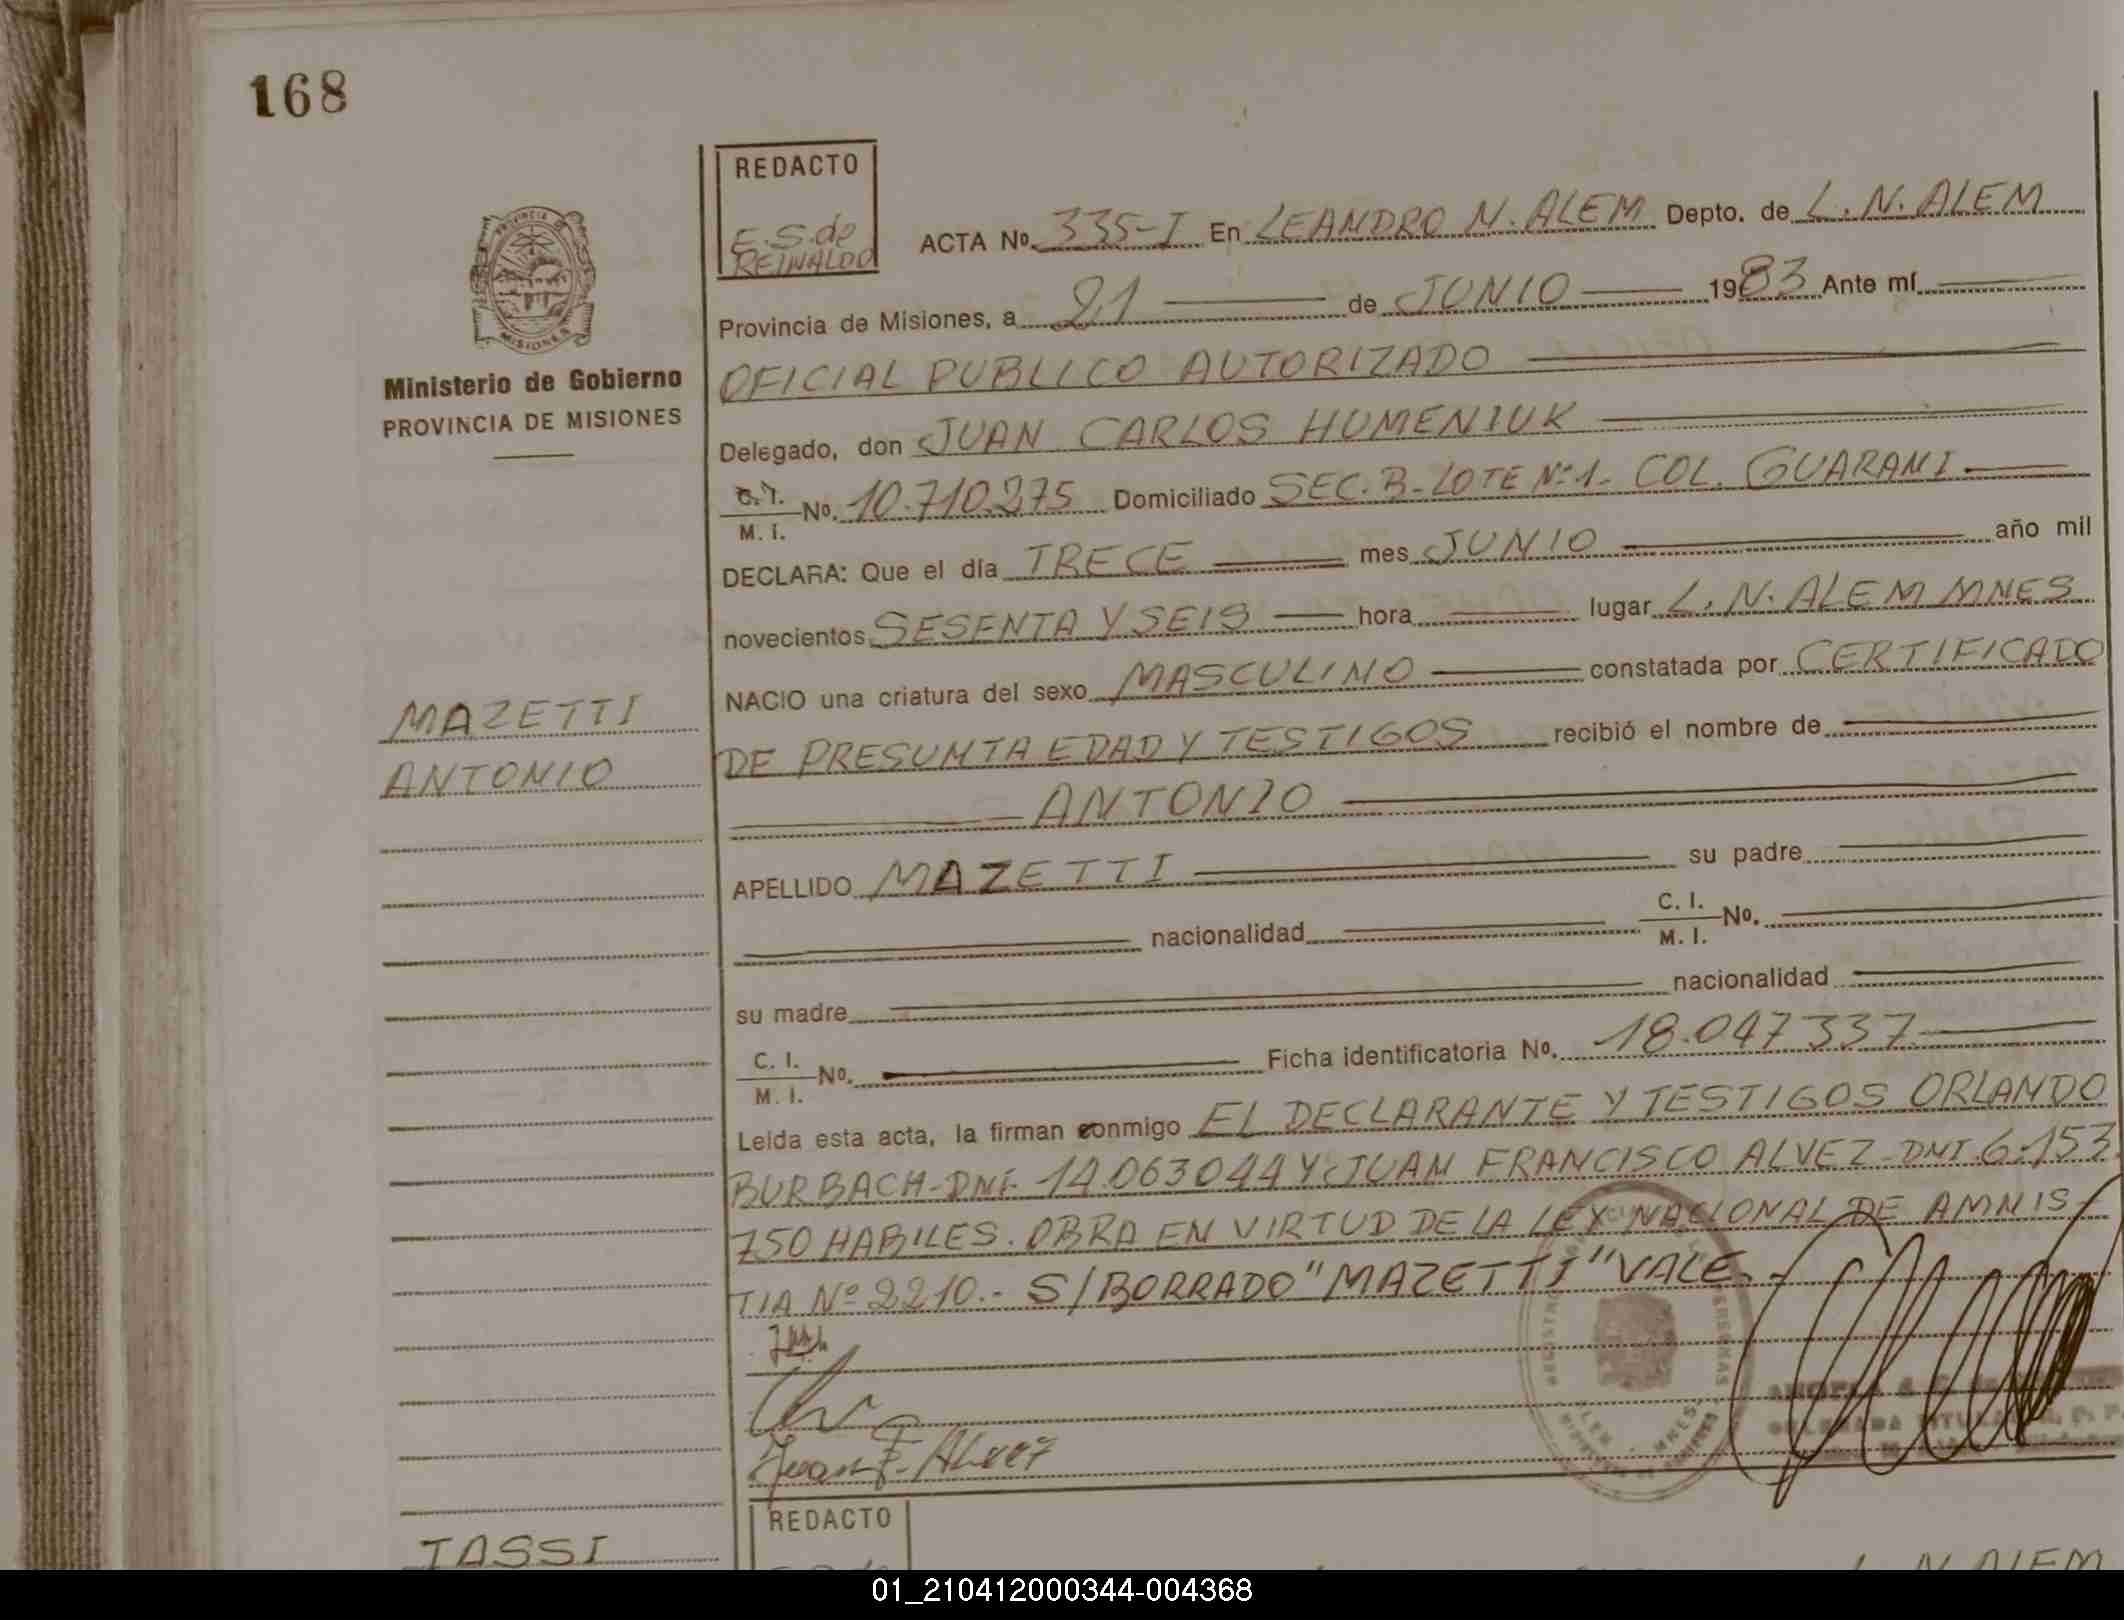 168
REDACTO
E.S. de
REINALDO
ACTA No. 335-I En LEANDRO N. ALEM Depto. de L. N. ALEM
Provincia de Misiones, a 21 de JUNIO 1983 Ante mí
OFICIAL PUBLICO AUTORIZADO
PROVINCIA
MISIONES
Ministerio de Gobierno
PROVINCIA DE MISIONES
Delegado, don JUAN CARLOS HUMENIUK
C. I. M. I. No. 10.710.275 Domiciliado SEC. B- LOTE Nº 1- COL. GUARANI
DECLARA: Que el día TRECE mes JUNIO año mil
novecientos SESENTA Y SEIS hora lugar L. N. ALEM MNES
NACIO una criatura del sexo MASCULINO constatada por CERTIFICADO
MAZETTI
ANTONIO
DE PRESUNTA EDAD Y TESTIGOS recibió el nombre de
ANTONIO
APELLIDO MAZETTI su padre
nacionalidad C. I. M. I. No.
su madre nacionalidad
C. I. M. I. No. Ficha identificatoria No. 18.047337
Leida esta acta, la firman conmigo EL DECLARANTE Y TESTIGOS ORLANDO
BURBACH-DNI- 14.063044 Y JUAN FRANCISCO ALVEZ-DNI.6.153.
750 HABILES. OBRA EN VIRTUD DE LA LEY NACIONAL DE AMNIS
TIA Nº 2210.- S/BORRADO "MAZETTI" VALE.-
Juan F. Alvez
REDACTO
TASSI
L. N. ALEM
01_210412000344-004368